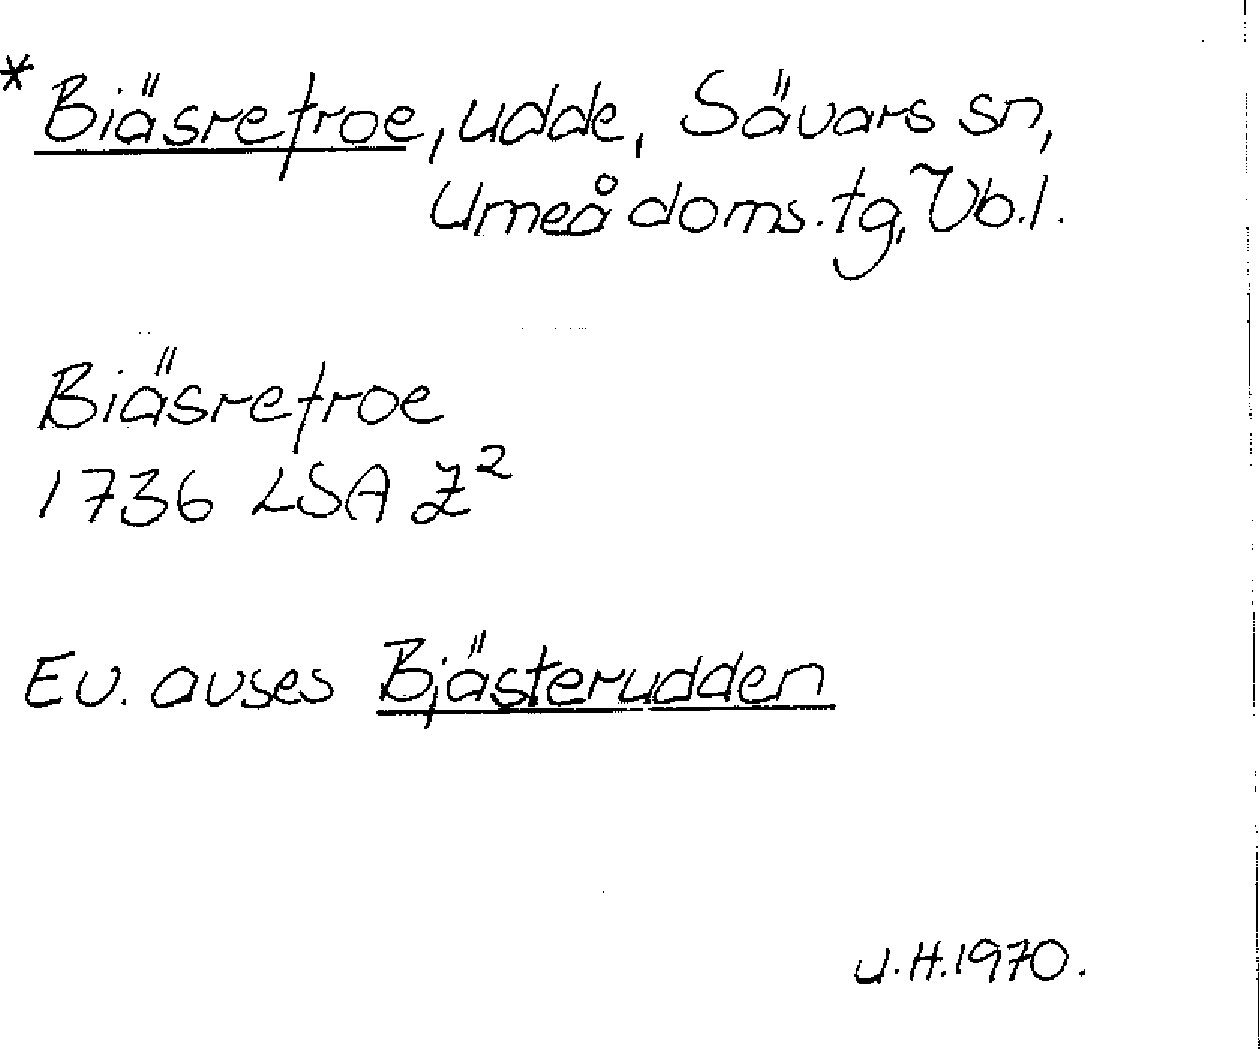 *Biäsrefroe, udde, Sävars sn,
Umeå doms.tg, Vb.l.
Biäsrefroe
1736 LSA Z²
Ev. avses Bjästerudden
U.H.1970.